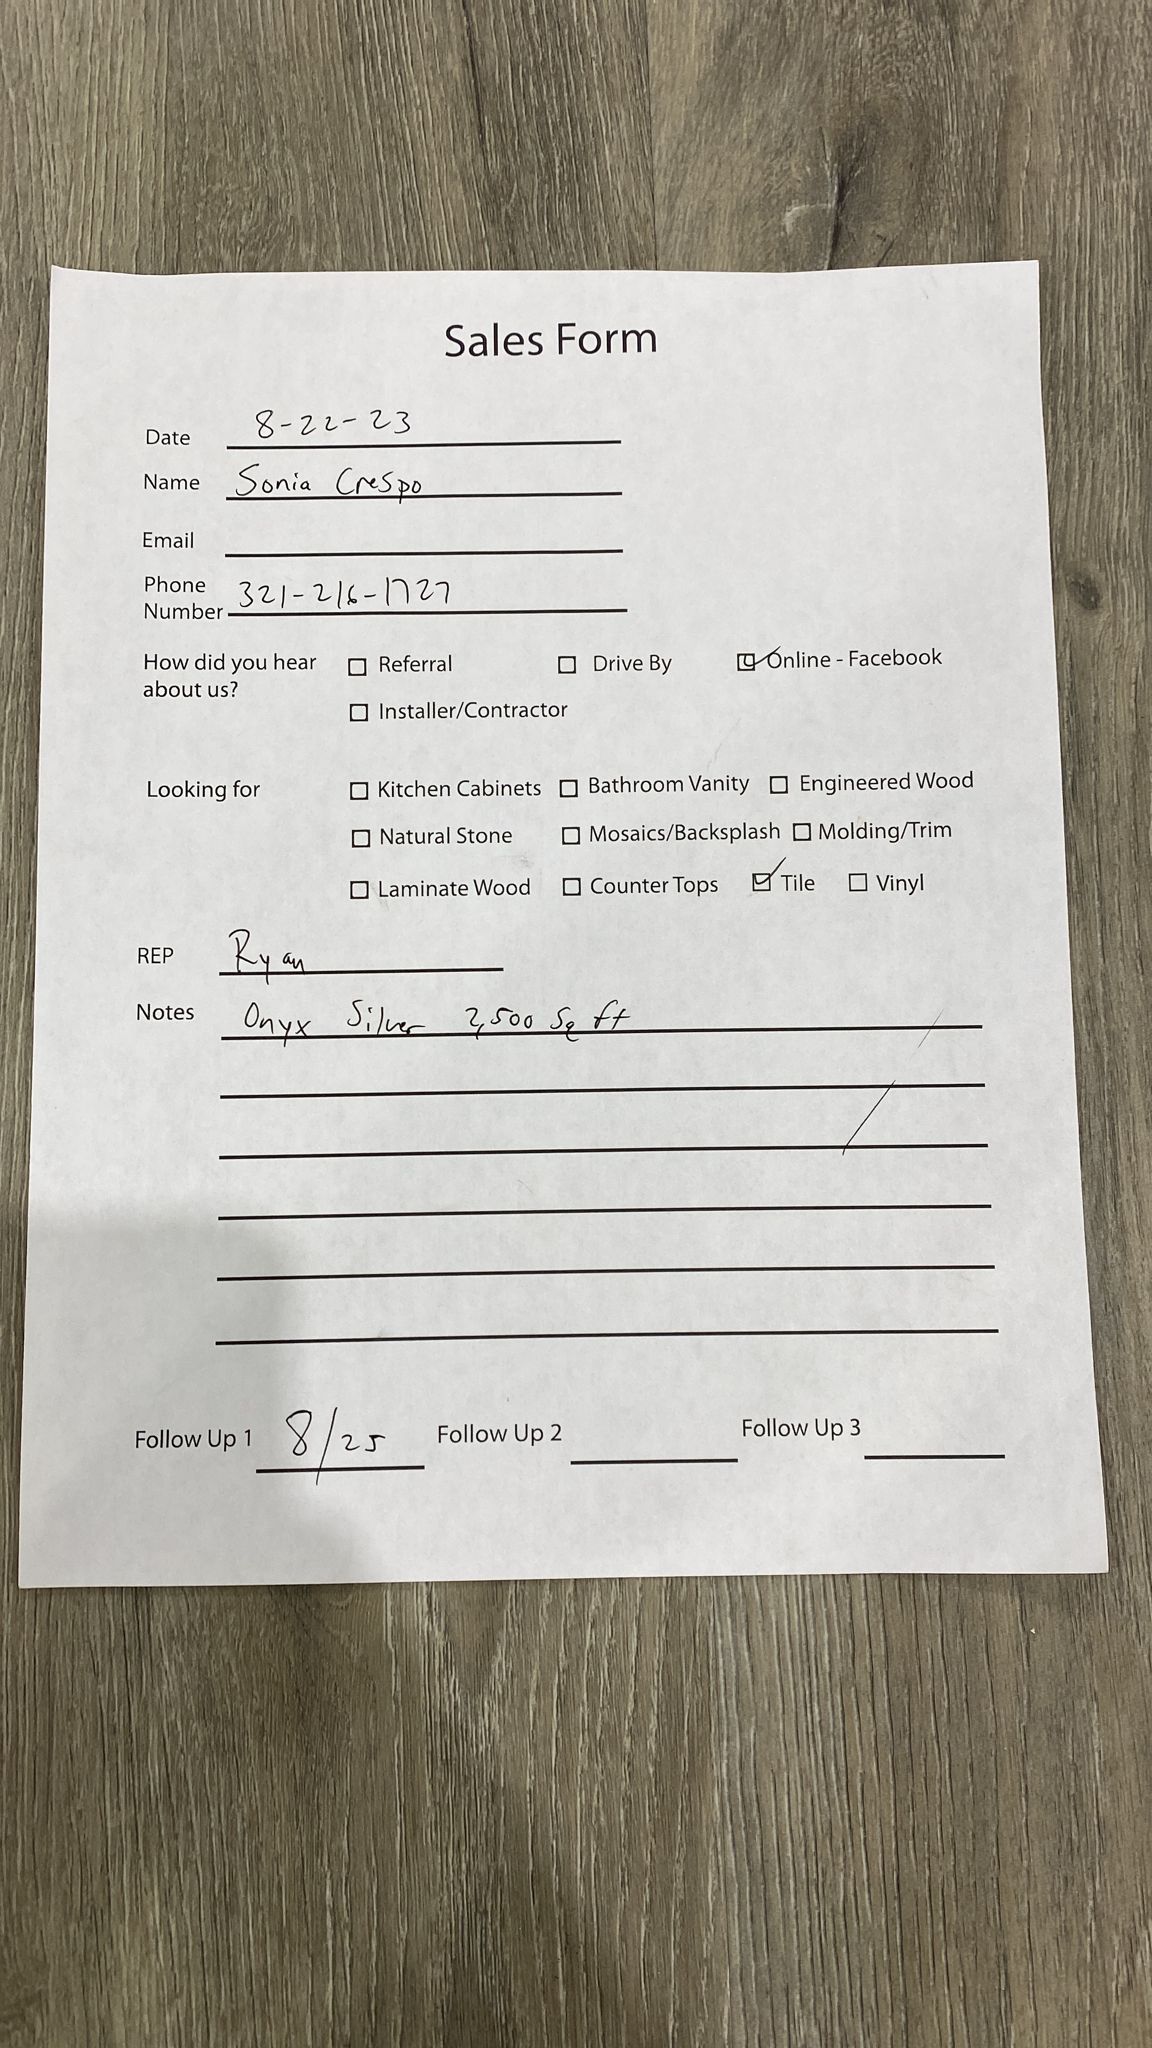 Sales Form
Date 8-22-23
Name Sonia Crespo
Email
Phone Number 321-216-1727
How did you hear about us? ☐ Referral ☐ Drive By ☑ Online - Facebook
☐ Installer/Contractor
Looking for ☐ Kitchen Cabinets ☐ Bathroom Vanity ☐ Engineered Wood
☐ Natural Stone ☐ Mosaics/Backsplash ☐ Molding/Trim
☐ Laminate Wood ☐ Counter Tops ☑ Tile ☐ Vinyl
REP Ryan
Notes Onyx Silver 2,500 Sq ft
Follow Up 1 8/25 Follow Up 2 Follow Up 3